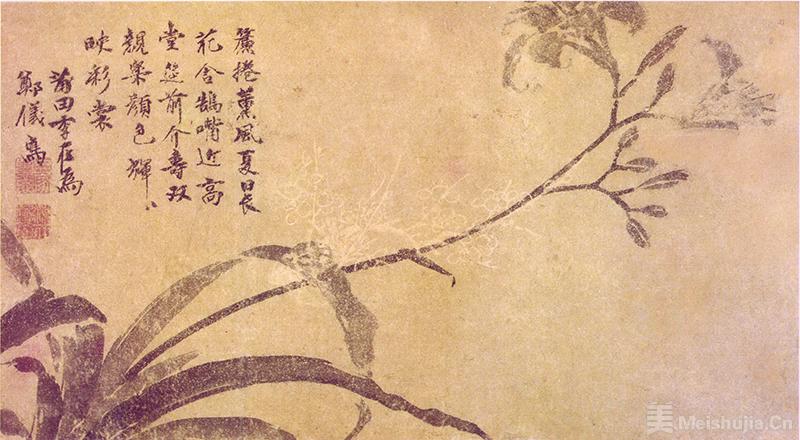 簾捲薰風夏日長
花含鵠嘴近高
堂筵前介壽双
親樂顏色輝〻
映彩裳
莆田李在為
鄭儀寫
美 Meishujia.Cn